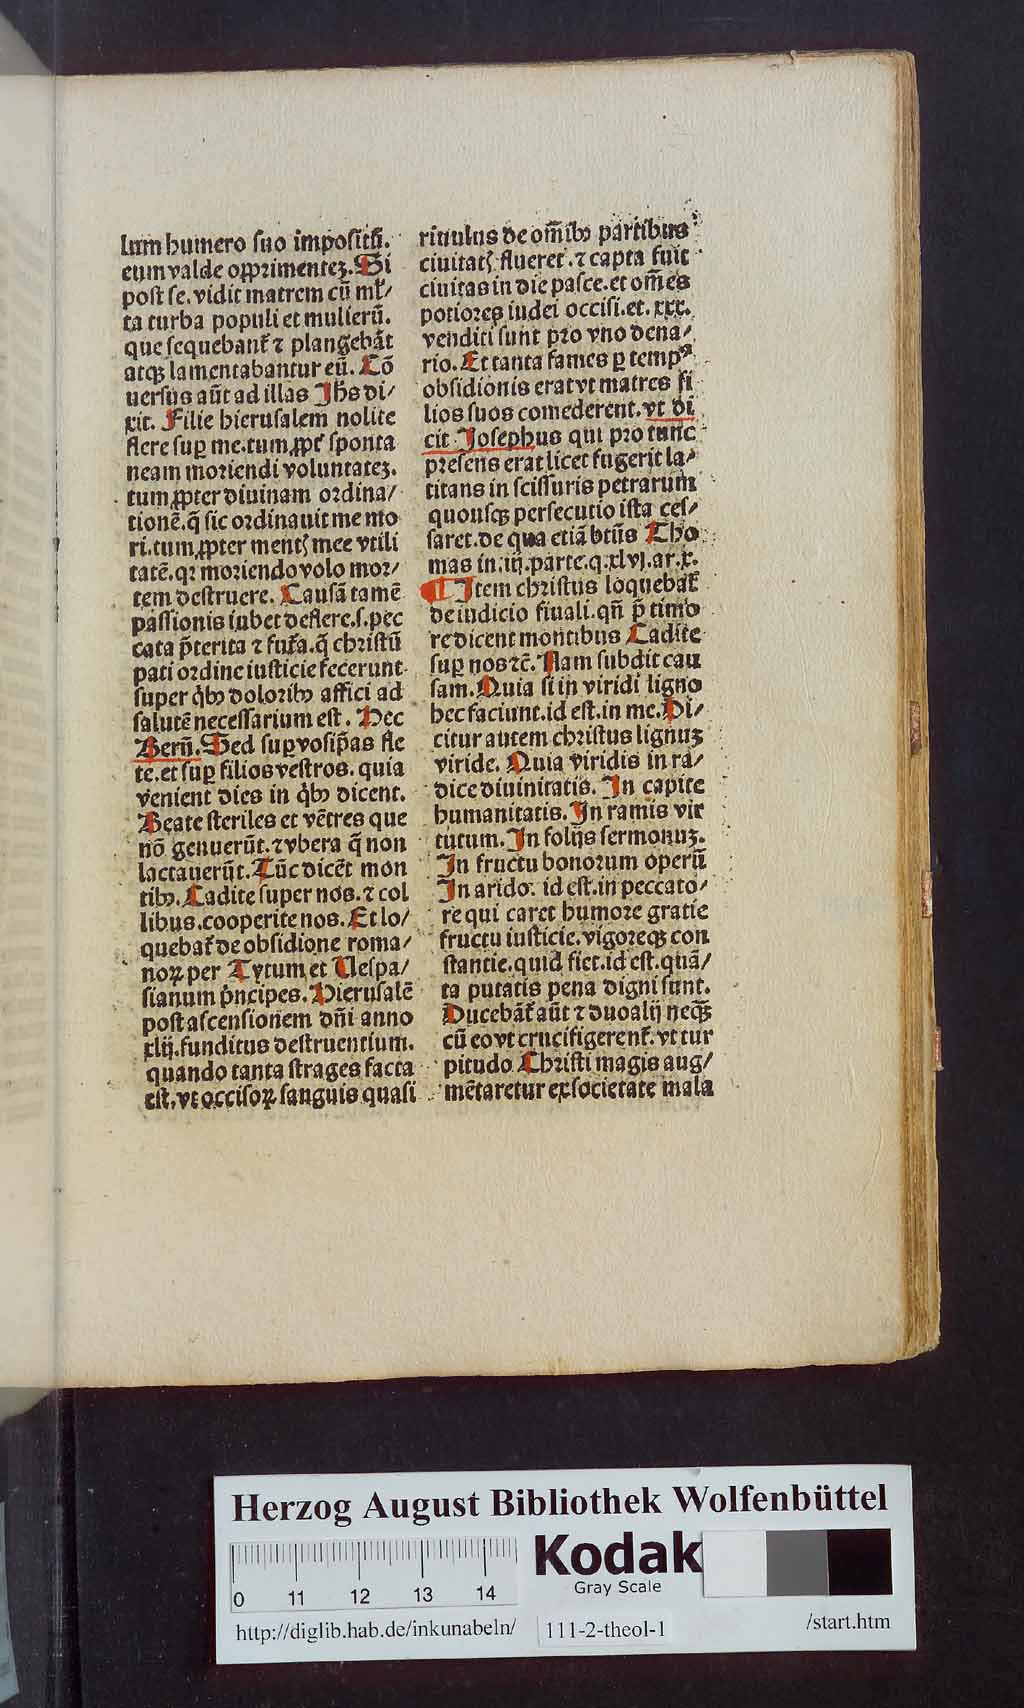 lum humero suo impositũ.
eum valde opprimentez. Si
post se. vidit matrem cũ ml̓/
ta turba populi et mulierũ.
que sequebant᷑ ⁊ plangebãt
atqꝫ lamentabantur eũ. Cõ
uersus aũt ad illas Jhs̃ di/
xit. Filie hierusalem nolite
flere suꝑ me. tum ꝓpt᷑ sponta
neam moriendi voluntatez.
tum ꝓpter diuinam ordina/
tionẽ. q̃ sic ordinauit me mo
ri. tum ꝓpter mentꝭ mee vtili
tatẽ. qꝛ moriendo volo mor/
tem destruere. Causã tamẽ
passionis iubet deflere. s. pec
cata p̃terita ⁊ fut᷑a. q̃ christũ
pati ordine iusticie fecerunt
super q̇bꝫ doloribꝫ affici ad
salutẽ necessarium est. Hec
Berñ. Sed suꝑ vos ip̃as fle
te. et suꝑ filios vestros. quia
venient dies in q̇bꝫ dicent.
Beate steriles et vẽtres que
nõ genuerũt. ⁊ vbera q̃ non
lactauerũt. Tũc dicẽt mon
tibꝫ. Cadite super nos. ⁊ col
libus. cooperite nos. Et lo/
quebat᷑ de obsidione roma/
noꝝ per Tytum et Vespa/
sianum p̓ncipes. Hierusalẽ
post ascensionem dñi anno
xlij. funditus destruentium.
quando tanta strages facta
est. vt occisoꝝ sanguis quasi
riuulus de om̃ibꝫ partibus
ciuitatꝭ flueret. ⁊ capta fuit
ciuitas in die pasce. et om̃es
potiores iudei occisi. et. xxx.
venditi sunt pro vno dena/
rio. Et tanta fames ꝑ tempᵃ
obsidionis erat vt matres fi
lios suos comederent. vt di
cit Josephus qui pro tunc
presens erat licet fugerit la/
titans in scissuris petrarum
quousqꝫ persecutio ista ces/
saret. de qua etiã btũs Tho
mas in. iij. parte. q. xlvj. ar. x.
¶ Jtem christus loquebat᷑
de iudicio fiuali. qñ p̃ timo
re dicent montibus Cadite
suꝑ nos ⁊c̃. Nam subdit cau
sam. Quia si in viridi ligno
hec faciunt. id est. in me. Di/
citur autem christus lignuꝫ
viride. Quia viridis in ra/
dice diuinitatis. Jn capite
humanitatis. Jn ramis vir
tutum. Jn folijs sermonuꝫ.
Jn fructu bonorum operũ
Jn arido. id est. in peccato/
re qui caret humore gratie
fructu iusticie. vigoreqꝫ con
stantie. quid fiet. id est. quã/
ta putatis pena digni sunt.
Ducebãt᷑ aũt ⁊ duo alij neqꝫ̃
cũ eo vt crucifigerent᷑. vt tur
pitudo Christi magis aug/
mẽtaretur ex societate mala
Herzog August Bibliothek Wolfenbüttel
Kodak
Gray Scale
0 11 12 13 14
http://diglib.hab.de/inkunabeln/ 111-2-theol-1 /start.htm